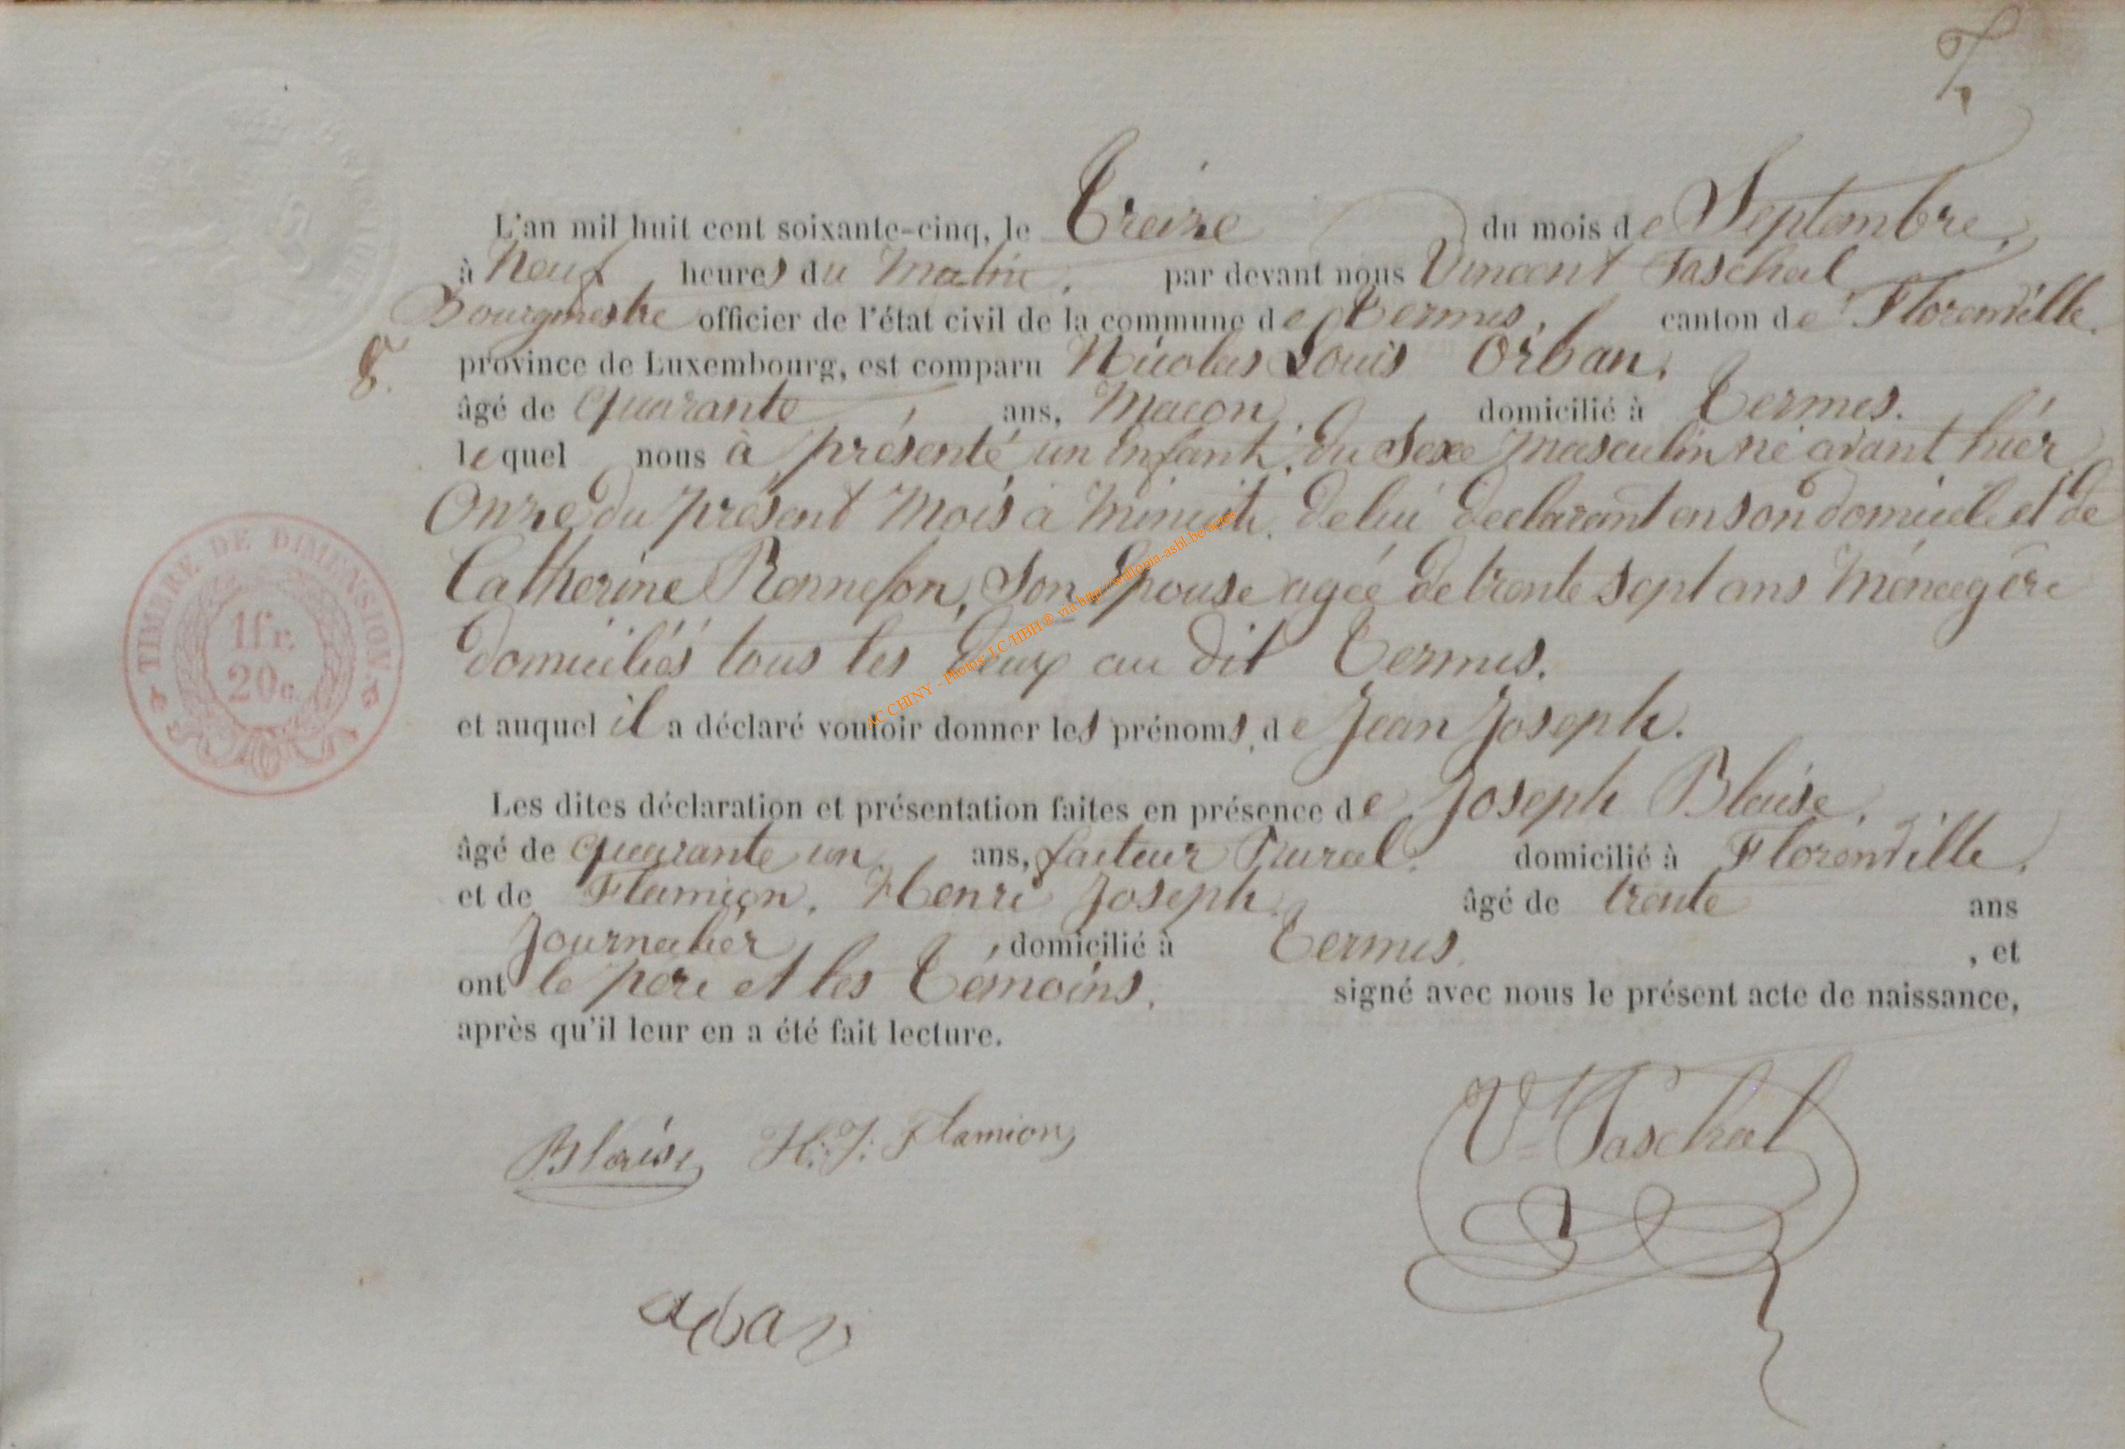 7
L'an mil huit cent soixante-cinq, le Treize du mois de Septembre,
à Neuf heures du Matin, par devant nous Vincent Paschal
Bourgmestre officier de l'état civil de la commune de Termes, canton de Florenville
8. province de Luxembourg, est comparu Nicolas Louis Orban,
âgé de quarante ans, Maçon, domicilié à Termes.
lequel nous à présenté un enfant, du Sexe masculin né avant hier
Onze du présent Mois à Minuit, de lui declarant en son domicile et de
Catherine Ronnefon, Son Epouse agée de trente sept ans Ménagère
domiciliés tous les deux au dit Termes.
et auquel il a déclaré vouloir donner les prénoms de Jean Joseph.
Les dites déclaration et présentation faites en présence de Joseph Blaise,
âgé de quarante un ans, facteur Rural, domicilié à Florenville,
et de Flamion, Henri Joseph, âgé de trente ans
Journalier, domicilié à Termes, et
ont le père et les Témoins, signé avec nous le présent acte de naissance,
après qu'il leur en a été fait lecture.
Blaise H. J. Flamion V. Paschal
orban
TIMBRE DE DIMENSION.
1fr.
20c.
AC CHINY - Photos J.C/HBH ® via http://wallonia-asbl.be/actes